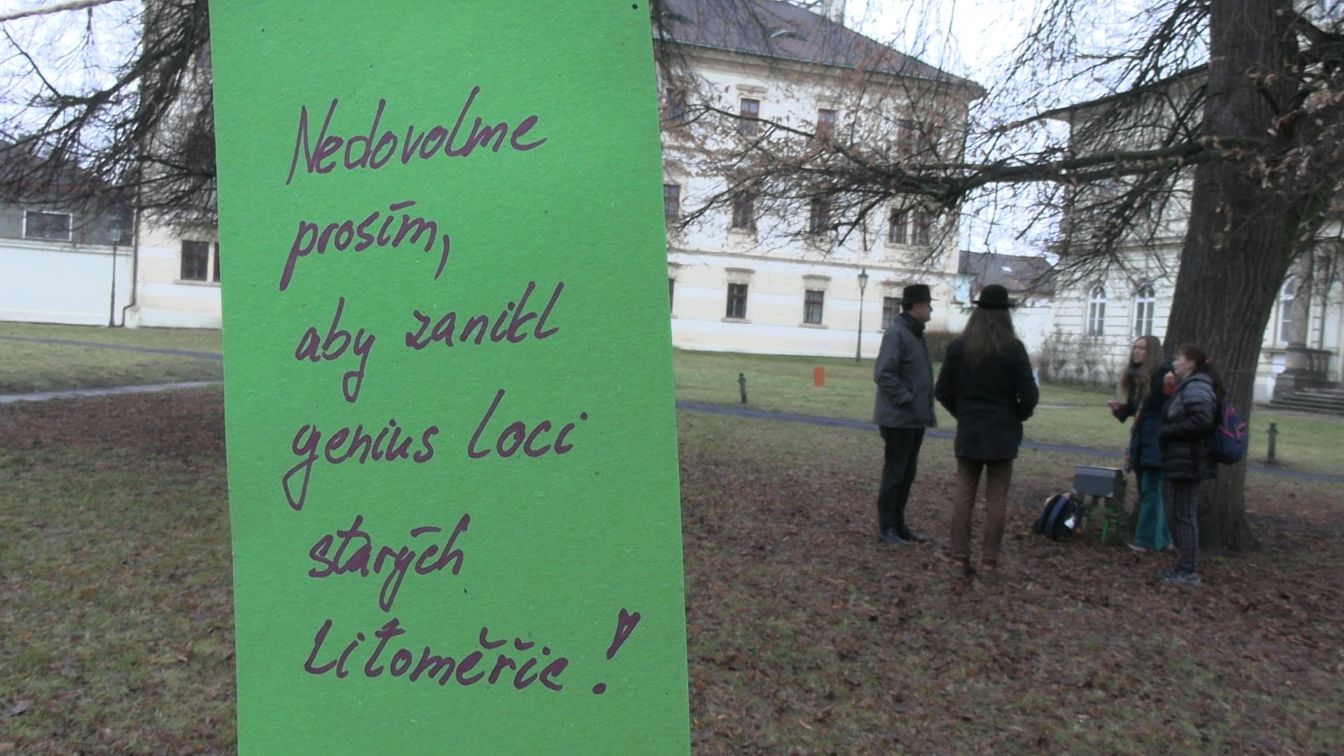 Nedovolme
prosím,
aby zanikl
genius loci
starých
Litoměřic!